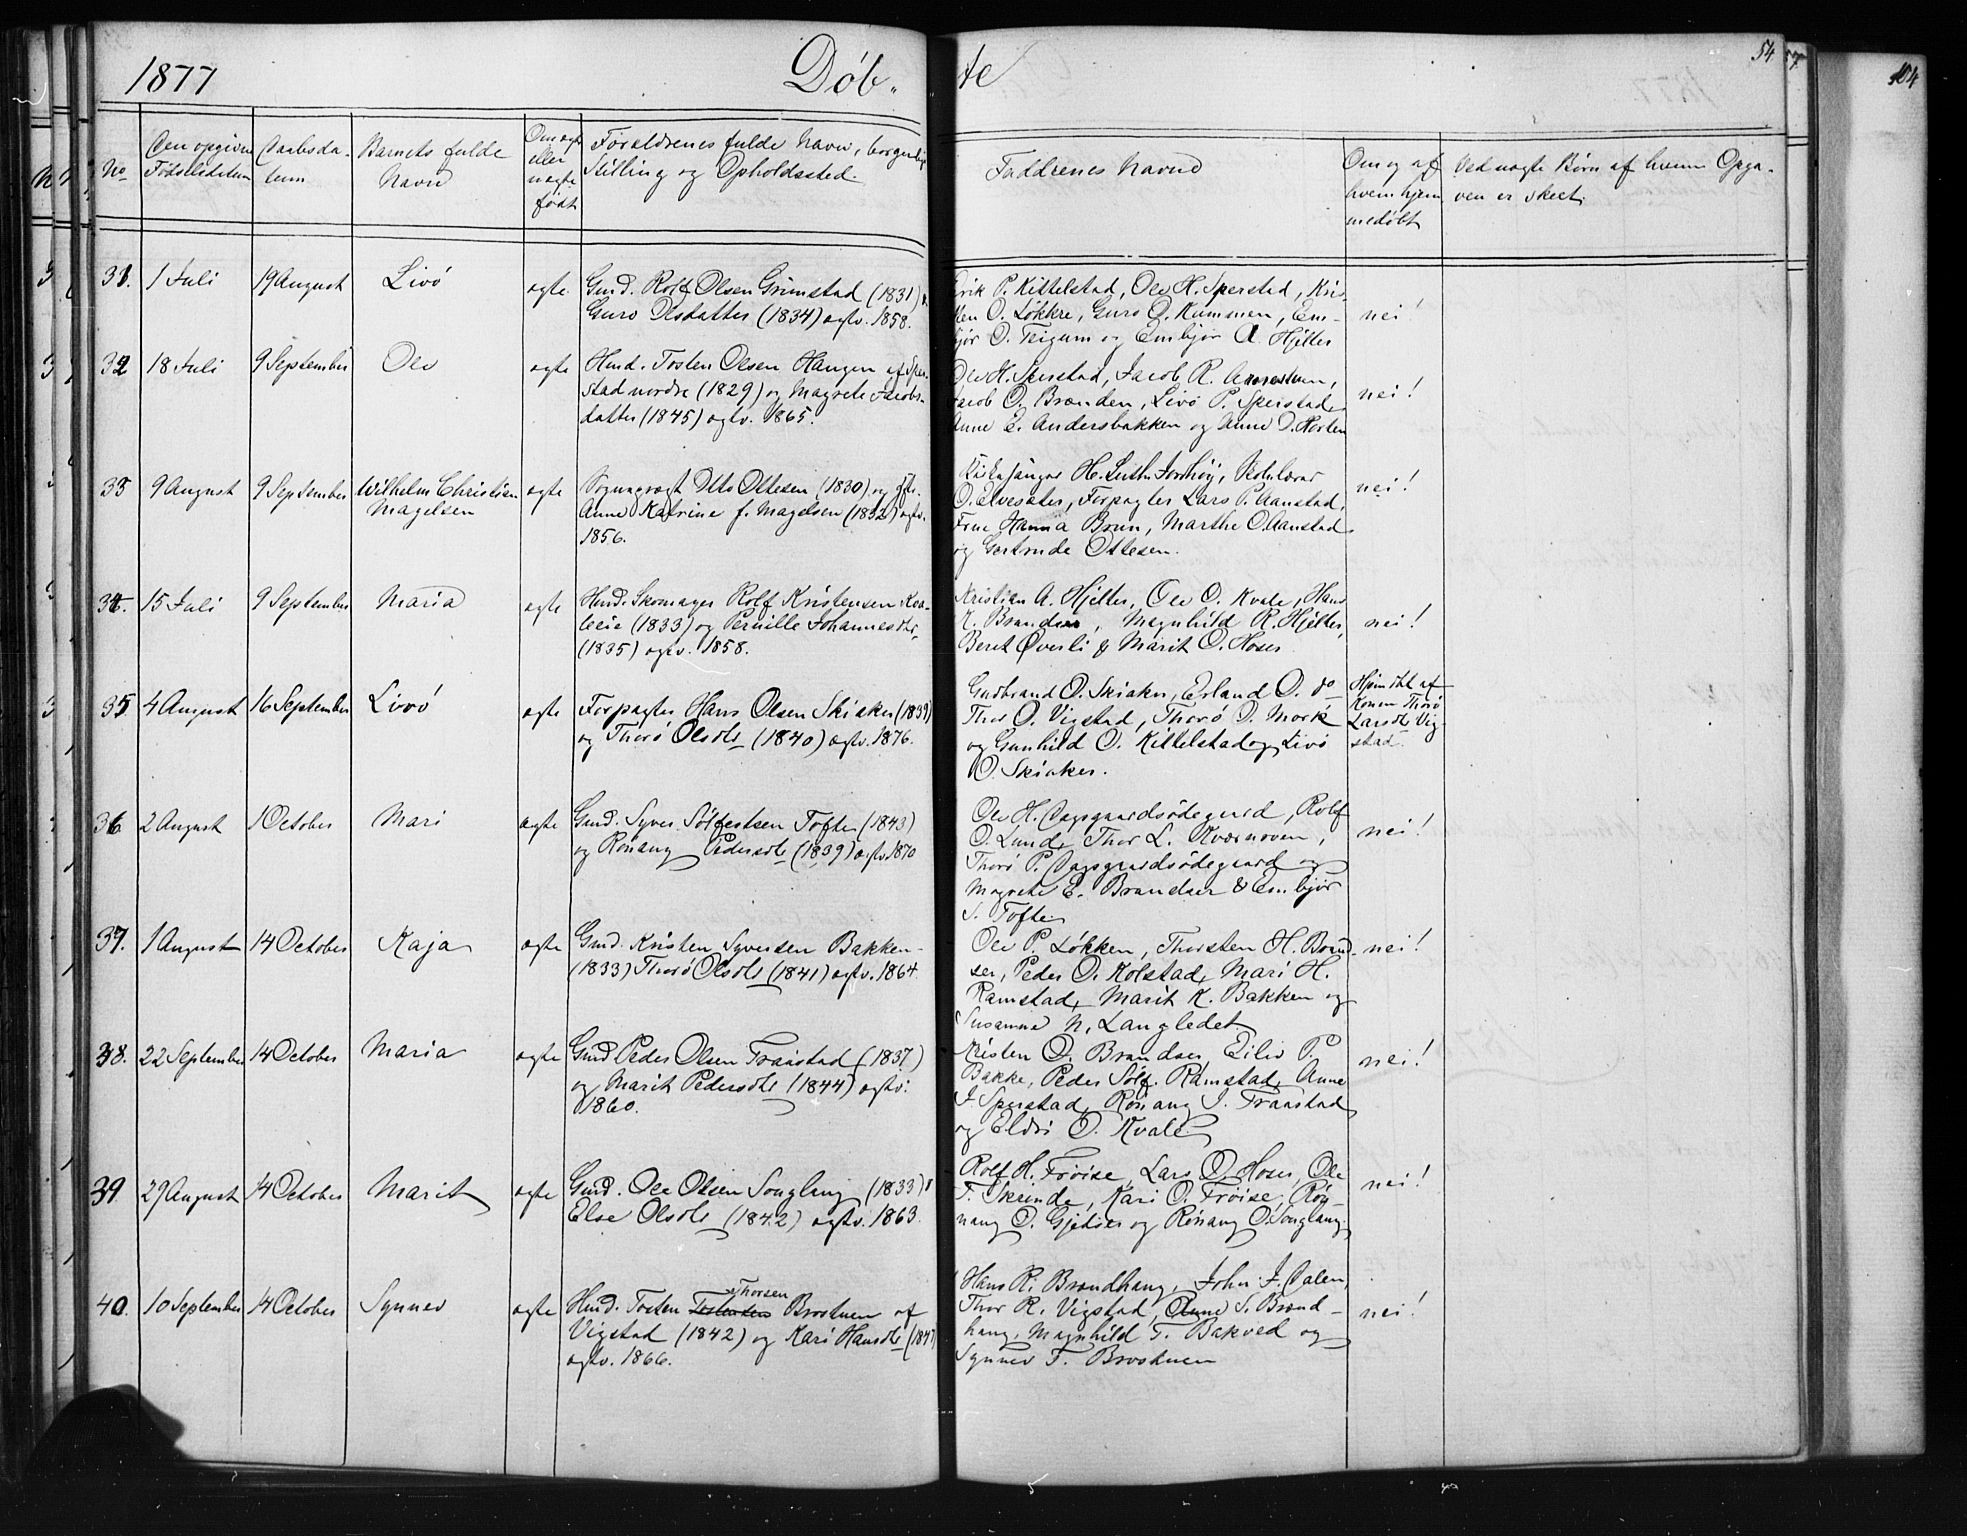 1877
Døb-
te
54
104
No
Den opgivne
Fødselsdatum
Daabsda-
tum
Barnets fulde
Navn
Om ægte
eller
uægte
født
Forældrenes fulde Navn, borgerlige
Stilling og Opholdssted.
Faddrenes Navne
Om og af
hvem hjem
medøbt
Ved uægte Børn af hvem Opga-
ven er skeet.
31.
1 Juli
19 August
Livó
ægte.
Gmd. Rolf Olsen Grimstad (1831)
Guro Olsdatter (1834) ægtv. 1858.
Erik P. Kittelstad, Ole H. Sperstad, Kris-
ten O. Løkkre, Guro O. Kummen, Em-
bjør O. Teigum og Embjør A. Hjelter
nei!
32
18 Juli
9 September
Ole
ægte
Hmd. Tosten Olsen Haugen af Sper-
stad nordre (1829) og Magrete Jacobs-
datter (1845) ægtv. 1865.
Ole H. Sperstad, Jacob R.
Jacob O. Brænden, Livó P. Sperstad,
Anne E. Andersbakken og Anne O. Horten
nei!
33
9 August
9 September
Wilhelm Christian
Magelsen
ægte
Sogneprest Otto Ottesen (1830) og
Anne Katrine f. Magelsen (1832) ægtv.
1856.
Kirkesanger H. Forthöy, Skolelærer
O. Elvesæter, Forpagter Lars P. Aanstad,
Frue Hanna Brun, Marthe O. Aanstad
og Gertrude Ottesen.
nei!
34.
15 Juli
9 September
Maria
ægte
Hmd. Skomager Rolf Kristensen Kva-
leeie (1833) og Pernille Johannesdtr.
(1835) ægtv. 1858.
Kristian A. Hjelter, Ole O. Kvale, Hans
K. Brandser, Magnhild R. Hjelter,
Beret Øverli & Marit O. Hoser
nei!
35
4 August
16 September
Livó
ægte
Forpagter Hans Olsen Skiaker (1839)
og Thoró Olsdtr (1840) ægtv. 1876.
Gudbrand O. Skiaker, Erland O. do
Thor O. Vigstad, Thoró O. Mork
og Gunhild O. Kittelstad og Livó
O. Skiaker.
Hjemdøbt af
Konen Thoró
Larsdtr Vig-
stad.
36
2 August
1 October
Mari
ægte
Gmd. Syver Sölfestsen Tofte (1843)
og Rónaug Pedersdtr (1839) ægtv. 1870
Ole H. Dagsgaardsødegaard, Rolf
O. Lund, Thor L. Kværnoven,
Thoró P. Dagsgaardsødegaard og
Magrete E. Brandser & Embjør
S. Tofte
nei!
37.
1 August
14 October
Kaja
ægte
Gmd. Kristen Syversen Bakken
(1833) Thoró Olsdtr (1841) ægtv. 1864.
Ole P. Løkken, Thorsten H. Brand-
ser, Peder O. Kolstad, Mari H.
Ramstad, Marit K. Bakken og
Susanne N. Langledet
nei!
38.
22 September
14 October
Maria
ægte
Gmd Peder Olsen Fraastad (1837)
og Marit Pedersdtr (1844) ægtv.
1860.
Kristen O. Brandser, Eiliv P.
Bakke, Peder Sölf. Ramstad, Anne
J. Sperstad, Rónaug J. Fraastad
og Eldri O. Kvale
nei!
39
29 August
14 October
Marit
ægte
Gmd. Ole Olsen Songlaug (1833)
Else Olsdtr (1842) ægtv. 1863.
Rolf H. Fróise, Lars O. Hoser, Ole
T. Skrinde, Kari O. Fróise, Rón-
naug O. Gjeitsier og Rónaug O. Songlaug
nei!
40.
10 September
14 October
Synnev
ægte
Thorsen
Hmd. Tosten Tostensen Brostuen af
Vigstad (1842) og Kari Hansdtr (1847)
ægtv. 1866.
Hans R. Brandhaug, John J. Dalen,
Thor R. Vigstad, Anne S. Brand-
haug, Magnhild T. Bakved og
Synnev T. Brostuen
nei!